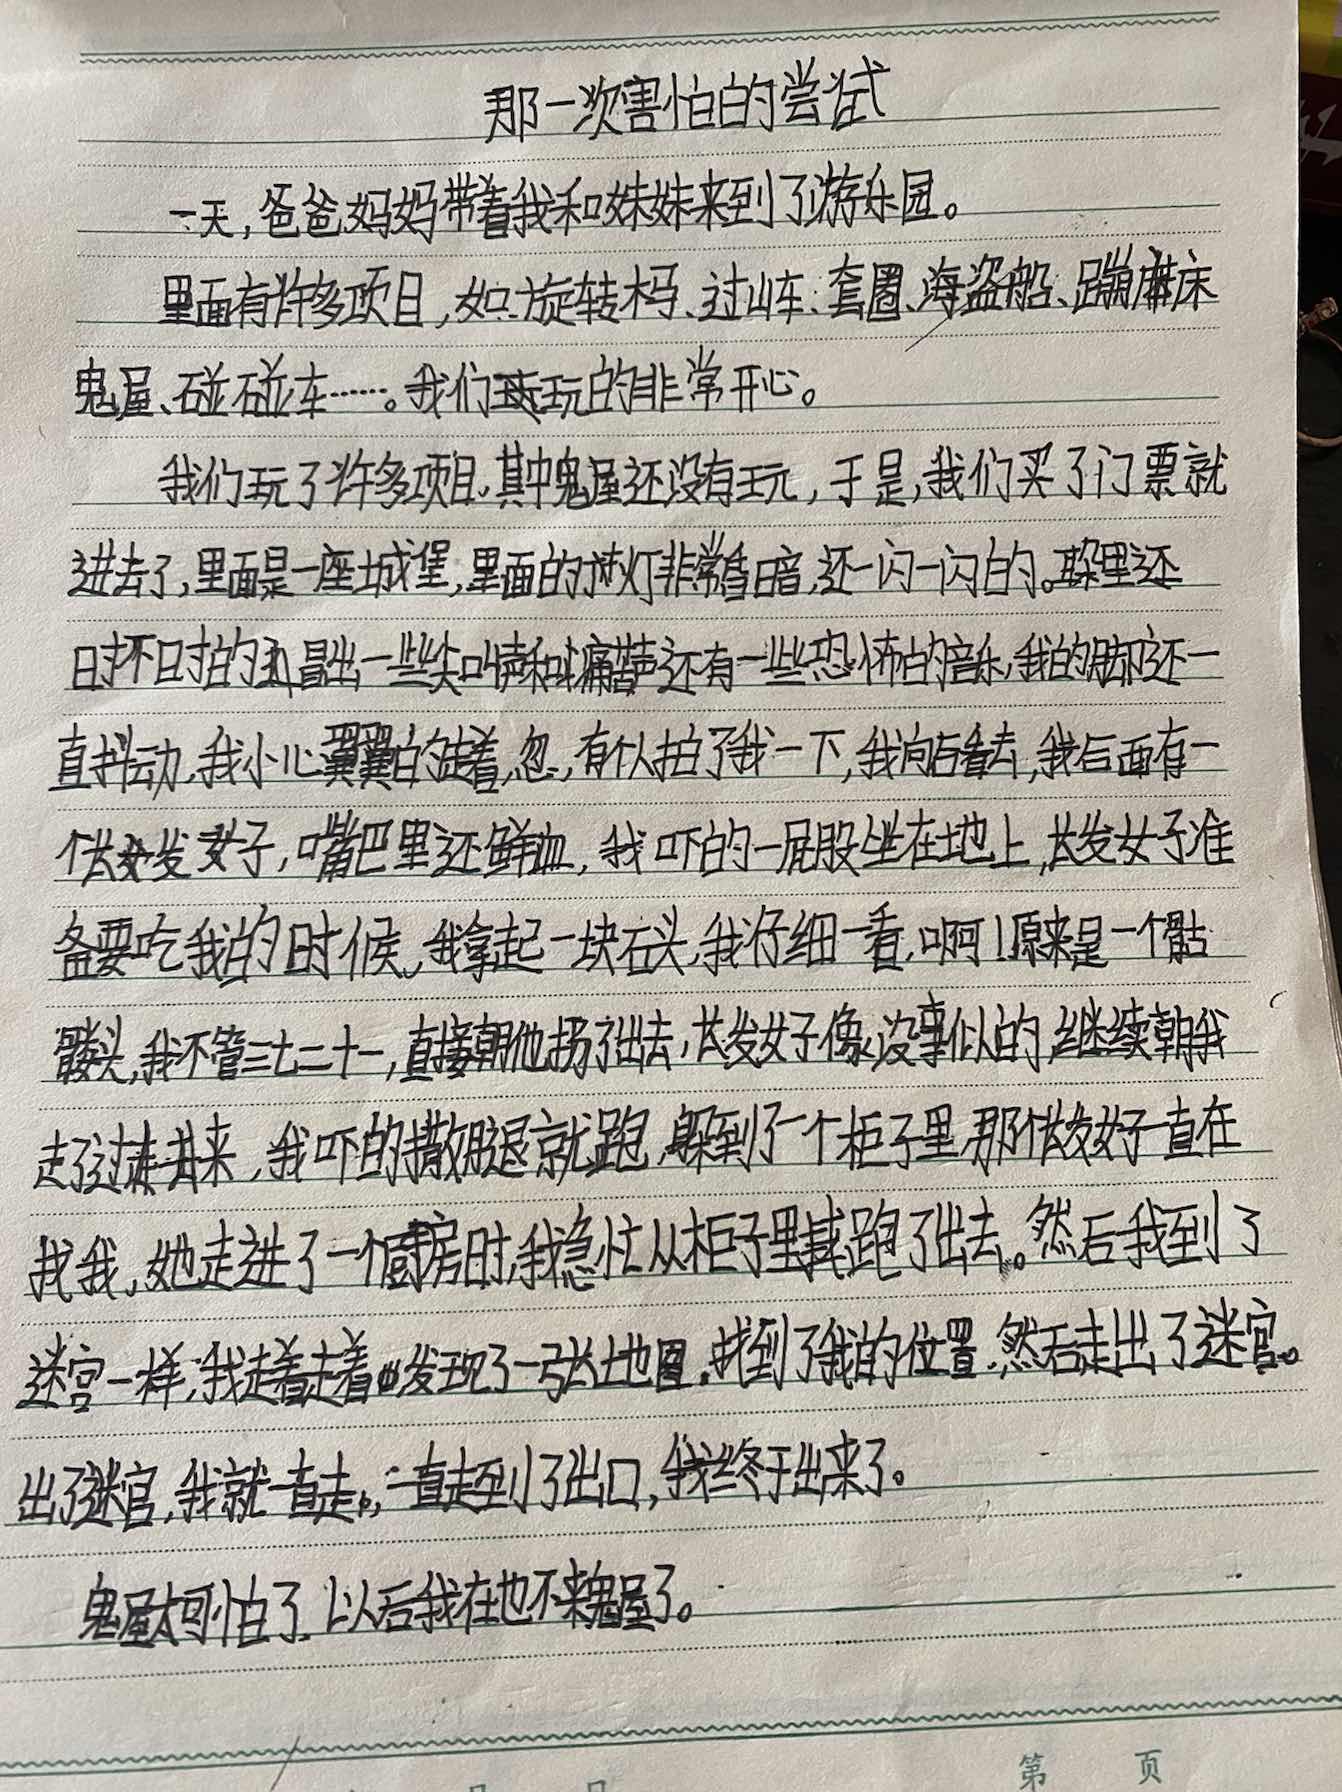 那一次害怕的尝试
一天，爸爸妈妈带着我和妹妹来到了游乐园。
里面有许多项目，如：旋转木马、过山车、套圈、海盗船、蹦床
鬼屋、碰碰车……。我们玩的非常开心。
我们玩了许多项目，其中鬼屋还没有玩，于是，我们买了门票就
进去了，里面是一座城堡，里面的灯非常昏暗，还一闪一闪的。那里还
时不时的冒出一些尖叫声和痛苦声还有一些恐怖的音乐，我的脚还一
直抖动，我小心翼翼的走着，忽，有个人拍了我一下，我向后看去，我后面有一
个长发女子，嘴巴里还鲜血，我吓的一屁股坐在地上，长发女子准
备要吃我的时候，我拿起一块石头，我仔细一看，啊！原来是一个骷
髅头，我不管三七二十一，直接朝他扔了出去，长发女子像没事似的，继续朝我
走了过来，我吓的撒腿就跑，躲到了一个柜子里，那个长发女子一直在
找我，她走进了一个厨房时，我急忙从柜子里跑了出去。然后我到了
迷宫一样，我走着走着发现了一张地图，找到了我的位置，然后走出了迷宫。
出了迷宫，我就一直走，一直走到了出口，我终于出来了。
鬼屋太可怕了，以后我在也不来鬼屋了。
第 页